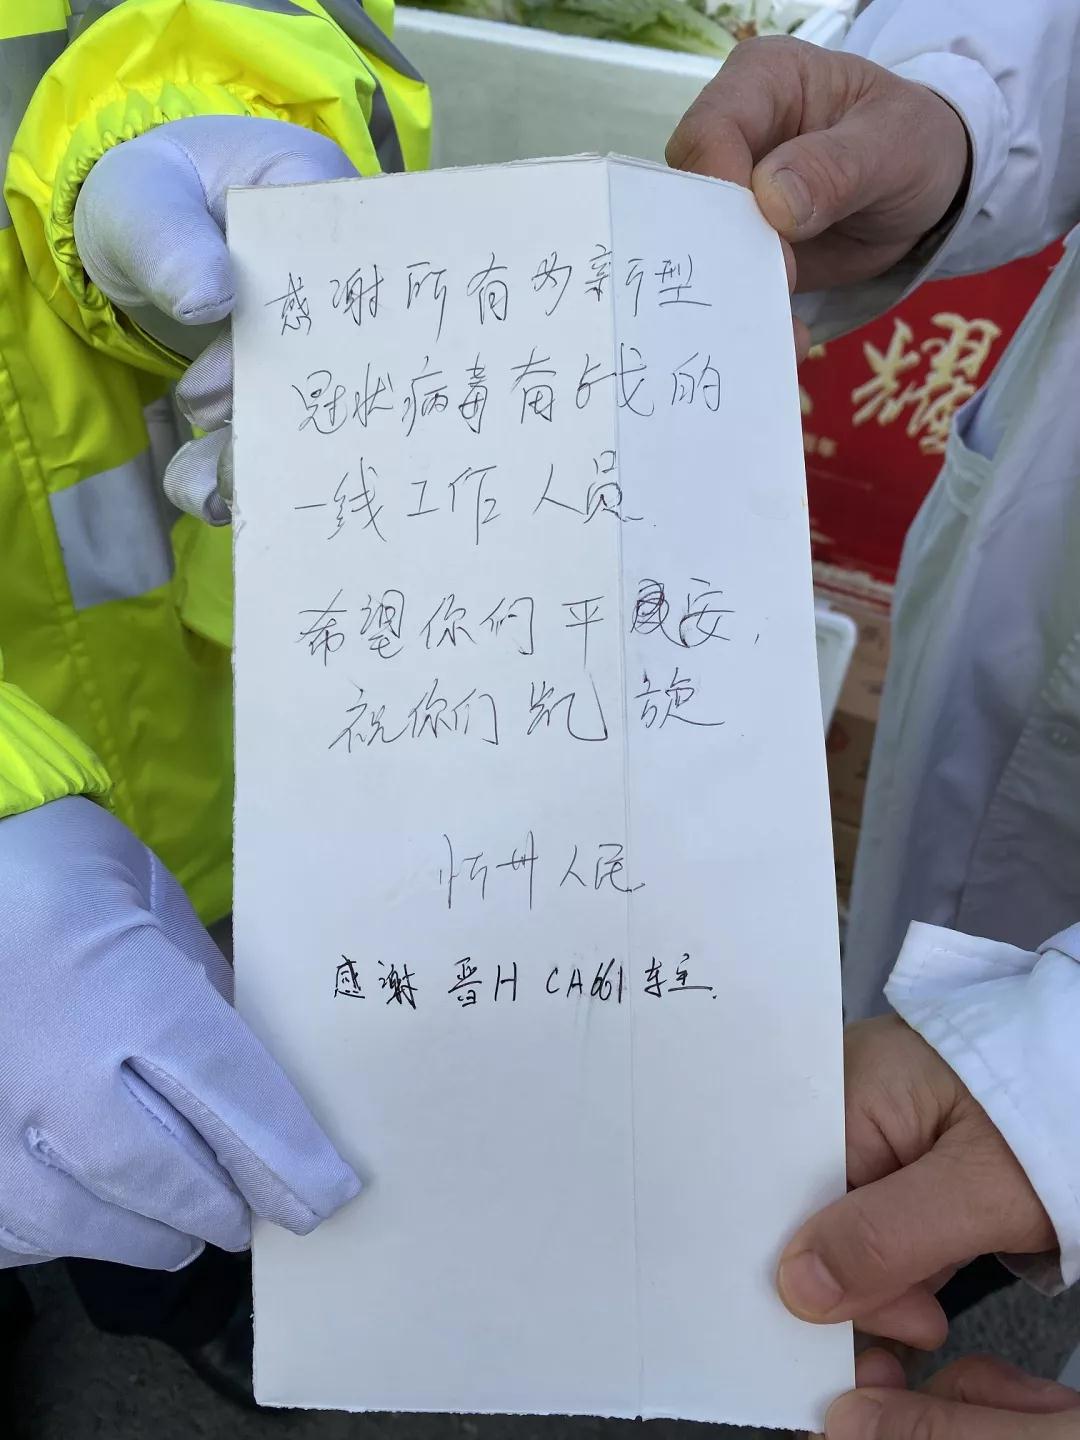 感谢所有为新型
冠状病毒奋战的
一线工作人员.
希望你们平安,
祝你们凯旋
忻州人民
感谢晋H CA661车主.
耀